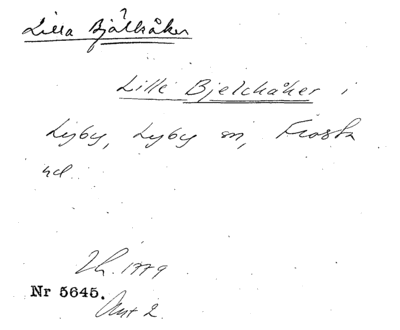 Lilla Bjälkåker
Lille Bjelckåker i
Lyby, Lyby sn, Frosta
hd.
Lh. 1779
Nr 5645.
Akt 2.